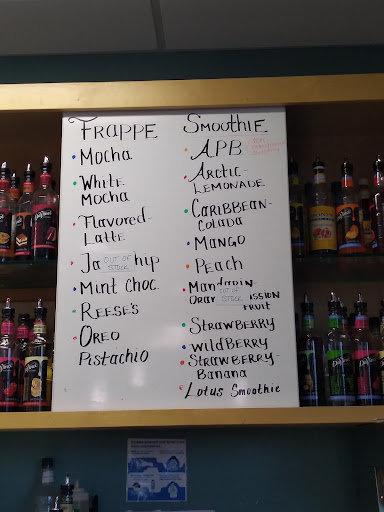 FRAPPE
MOCHA
WHITE
MOCHA
FLAVORED-
LATTE
JA OUT OF STOCK HIP
MINT CHOC.
REESE'S
OREO
PISTACHIO
SMOOTHIE
APB
ARCTIC-
LEMONADE
CARIBBEAN-
COLADA
MANGO
PEACH
MANDARIN
OUT OF STOCK ASSION
FRUIT
STRAWBERRY
WILDBERRY
STRAWBERRY-
BANANA
LOTUS SMOOTHIE